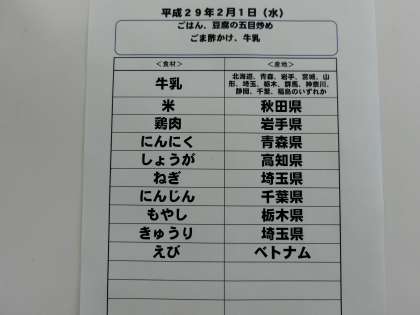 平成29年2月1日（水）
ごはん、豆腐の五目炒め
ごま酢かけ、牛乳
＜食材＞ ＜産地＞
牛乳 北海道、青森、岩手、宮城、山
形、埼玉、栃木、群馬、神奈川、
静岡、千葉、福島のいずれか
米 秋田県
鶏肉 岩手県
にんにく 青森県
しょうが 高知県
ねぎ 埼玉県
にんじん 千葉県
もやし 栃木県
きゅうり 埼玉県
えび ベトナム